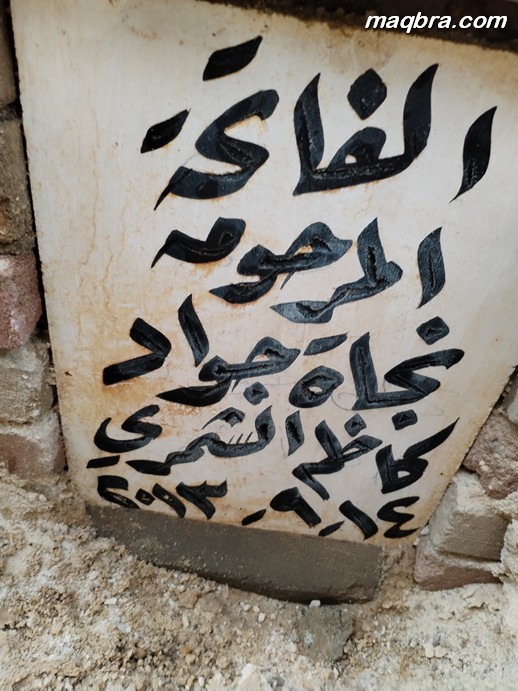 maqbra.com
الفاتحة
المرحومه
نجاة جواد
كاظم الشمري
١٤-٩-٢٠١٣